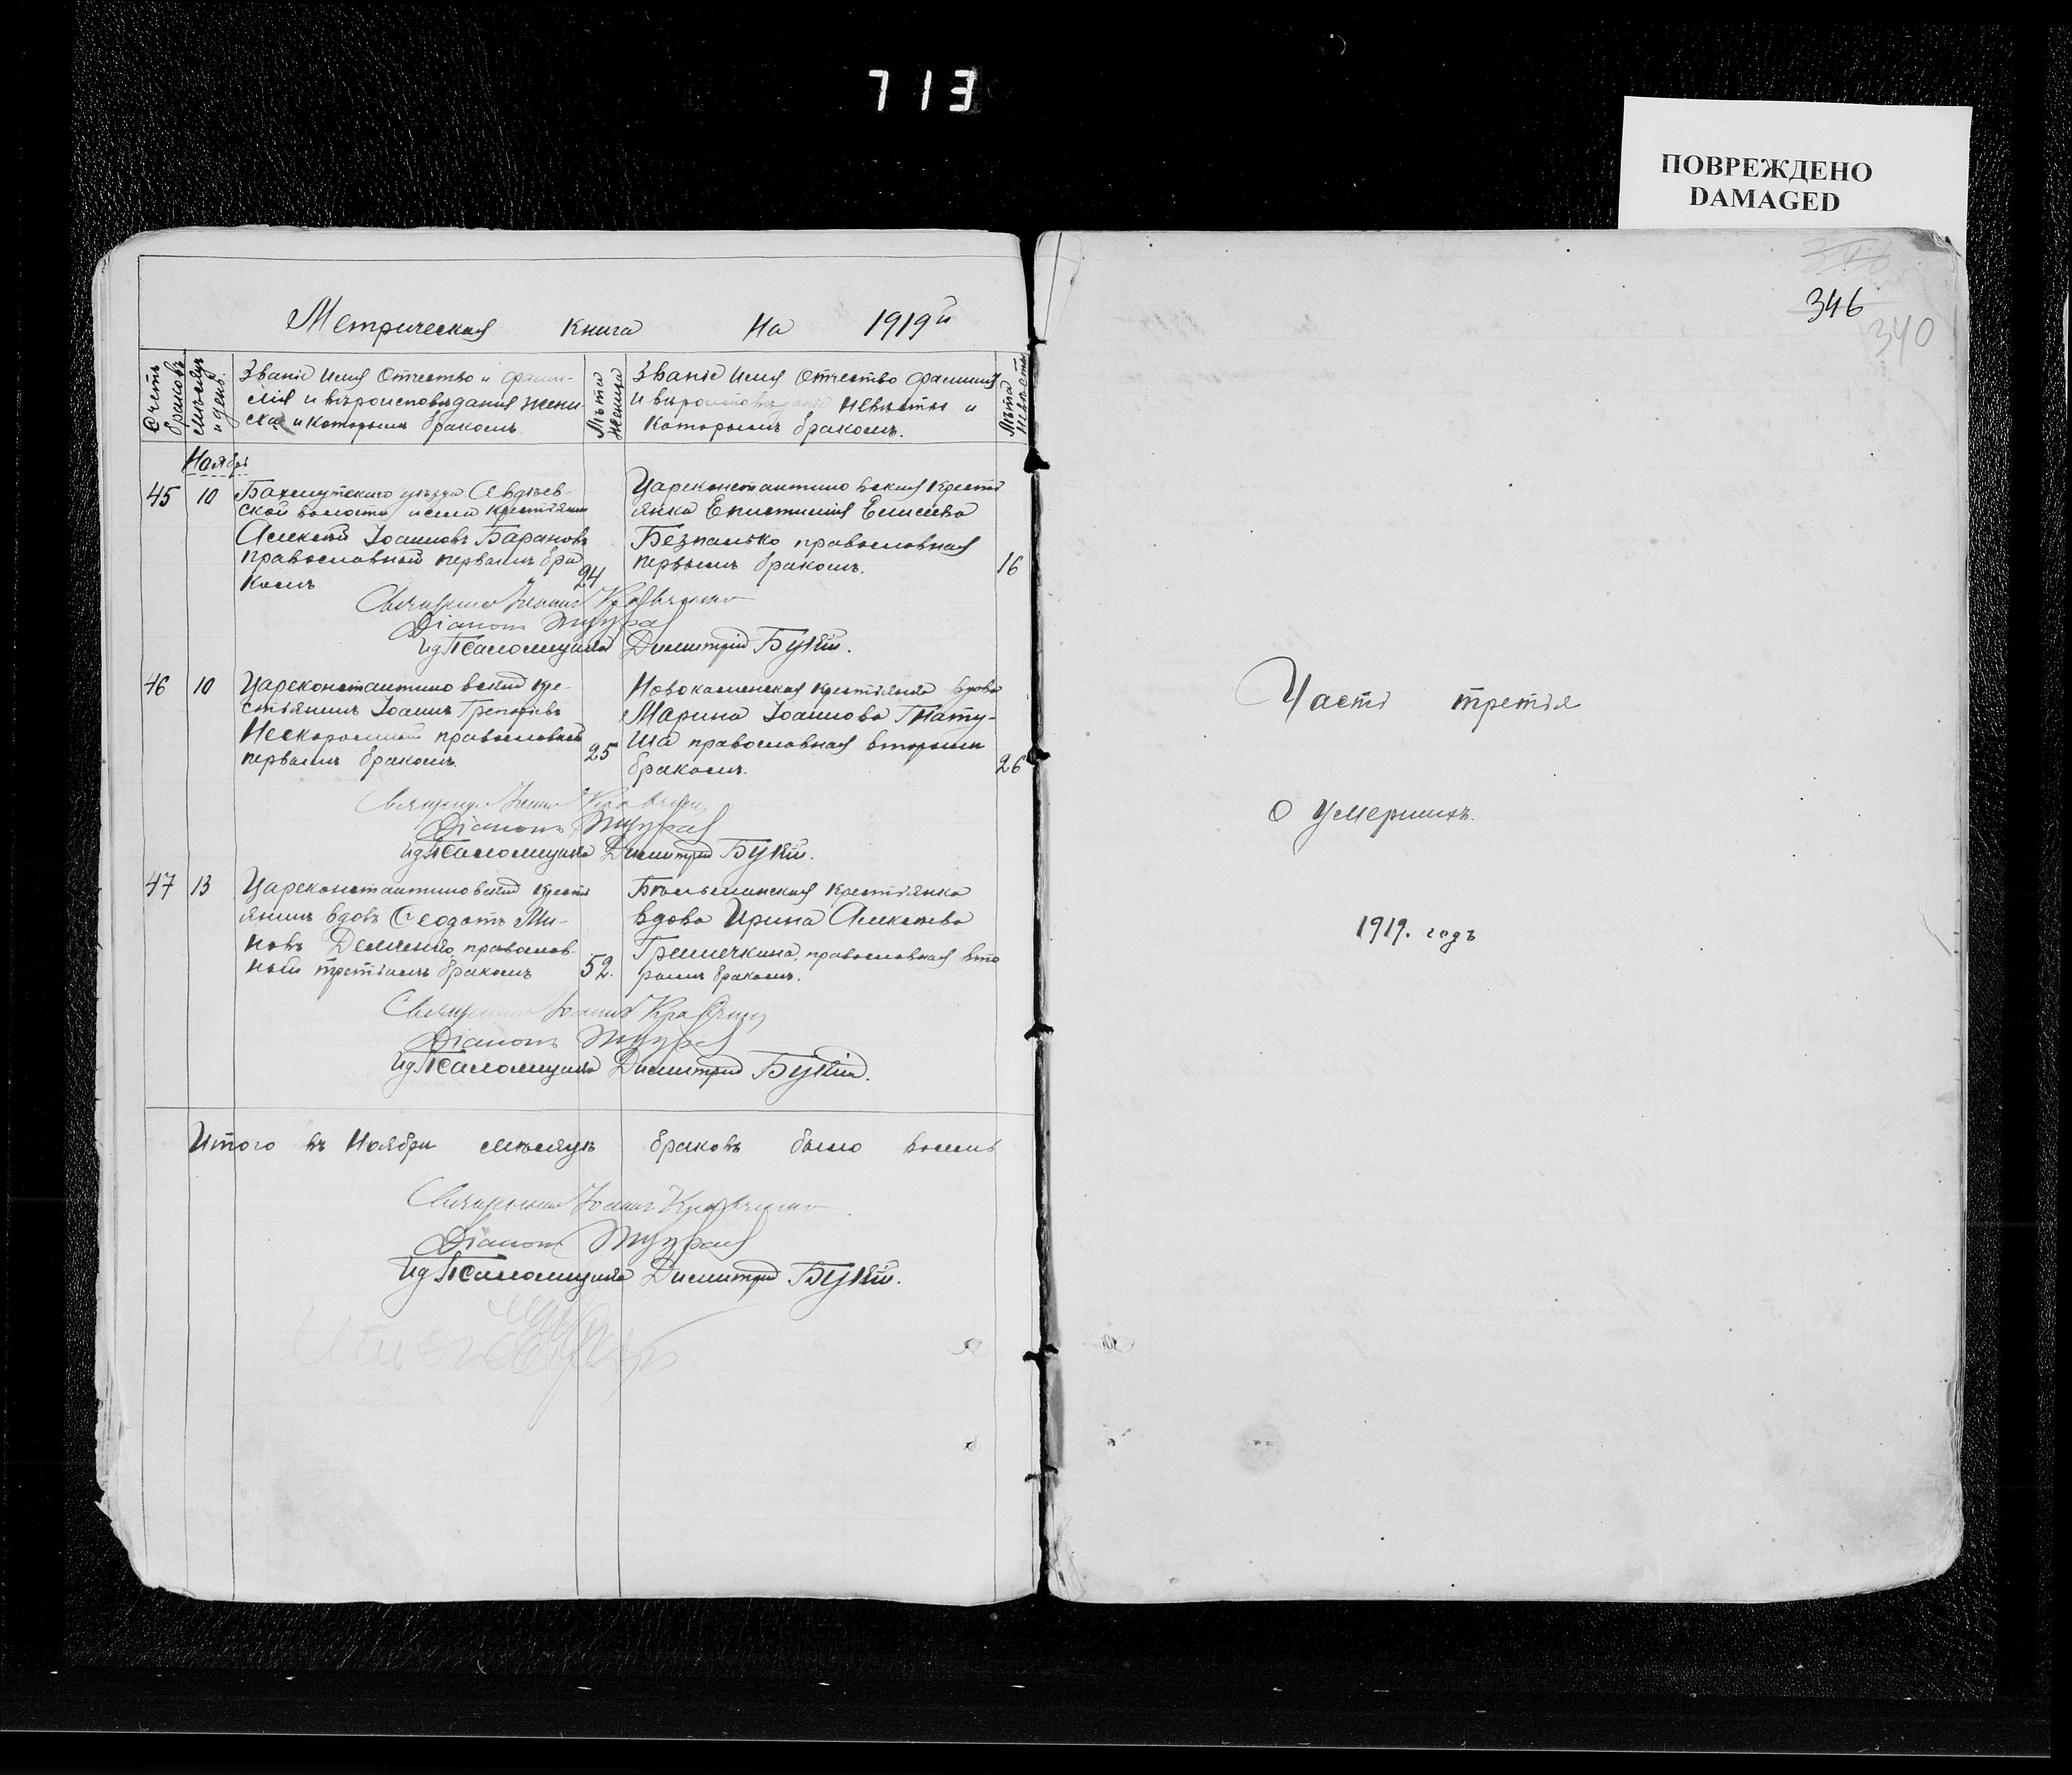 713
ПОВРЕЖДЕНО
DAMAGED
346
340
Метрическая книга на 1919й
Счетъ браковъ
Мѣсяцъ и день.
Званіе Имя Отчество и фами-
лія и вѣроисповѣданія жени-
ха и которымъ бракомъ
Лѣта жениха
Званіе Имя Отчество Фамилия
и вѣроисповѣданіе невѣсты и
которымъ бракомъ.
Лѣта невѣсты
Ноябрь
45 10 Бахмутскаго уѣзда Авдѣев-
ской волости и села крестьянин
Алексѣй Іоанновъ Барановъ
православный первымъ бра
комъ
24
Цареконстантиновская крестья
янка Епистимія Елисеева
Безпалько православная
первымъ бракомъ.
16
Священникъ Іоаннъ Кравченко
Діаконъ
Ид Псаломщика Димитрій Букій.
46 10 Цареконстантиновскій кре-
стьянинъ Іоаннъ
православный
первымъ бракомъ.
25
Новокаменская крестьянка вдова
Марина Іоаннова Гнату-
ша православная вторымъ
бракомъ.
26
Священникъ Іоаннъ
Діаконъ
Ид Псаломщика Димитрій Букій.
47 13 Цареконстантиновскій крестья
янинъ вдовъ Ѳеодотъ Ми-
новъ Демченко православ
ный третьимъ бракомъ
52.
Бѣльманская крестьянка
вдова Ирина Алексѣева
Гречечкина, православная вто
рымъ бракомъ.
Священникъ Іоаннъ
Діаконъ
Ид Псаломщика Димитрій Букій.
Итого въ Ноябрѣ мѣсяцѣ браковъ было восемь
Священникъ Іоаннъ Кравченко
Діаконъ
Ид Псаломщика Димитрій Букій.
Часть третья
О умершихъ.
1919. годъ